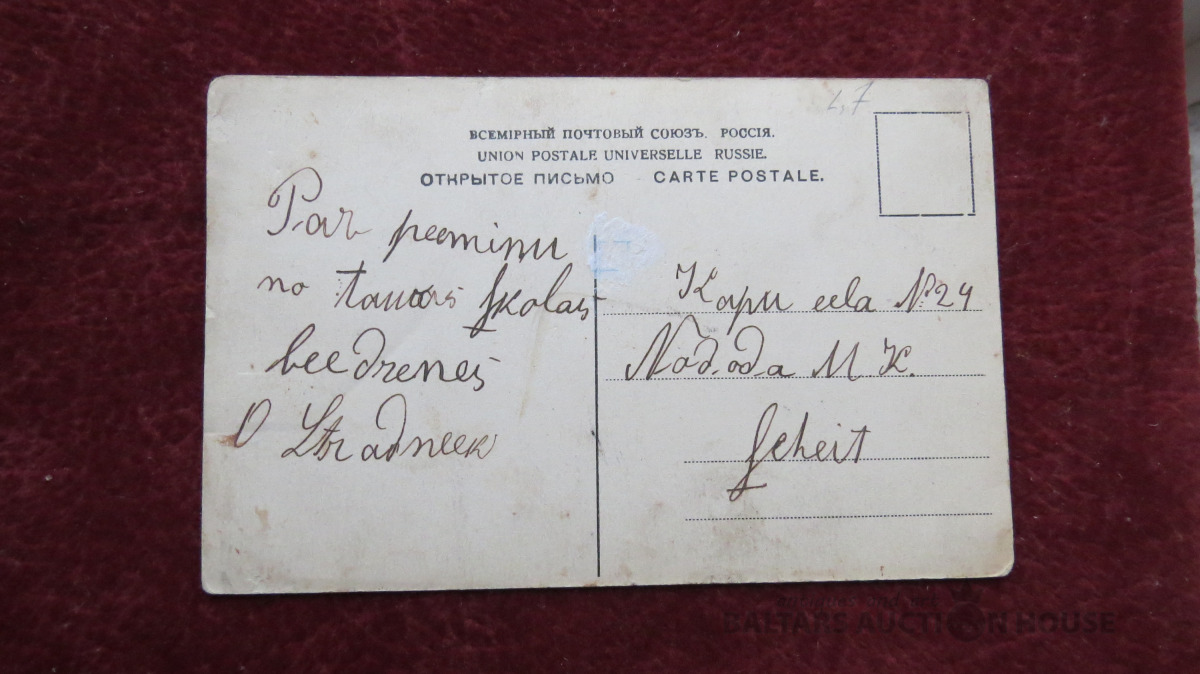 4,7
ВСЕМІРНЫЙ ПОЧТОВЫЙ СОЮЗЪ. РОССІЯ.
UNION POSTALE UNIVERSELLE RUSSIE.
ОТКРЫТОЕ ПИСЬМО CARTE POSTALE.
Par peeminu
no tawas skolas
beedrenes
O Stradneek
Kapu eela № 24
Nododa M. K.
Scheit
BALTARS AUCTION HOUSE